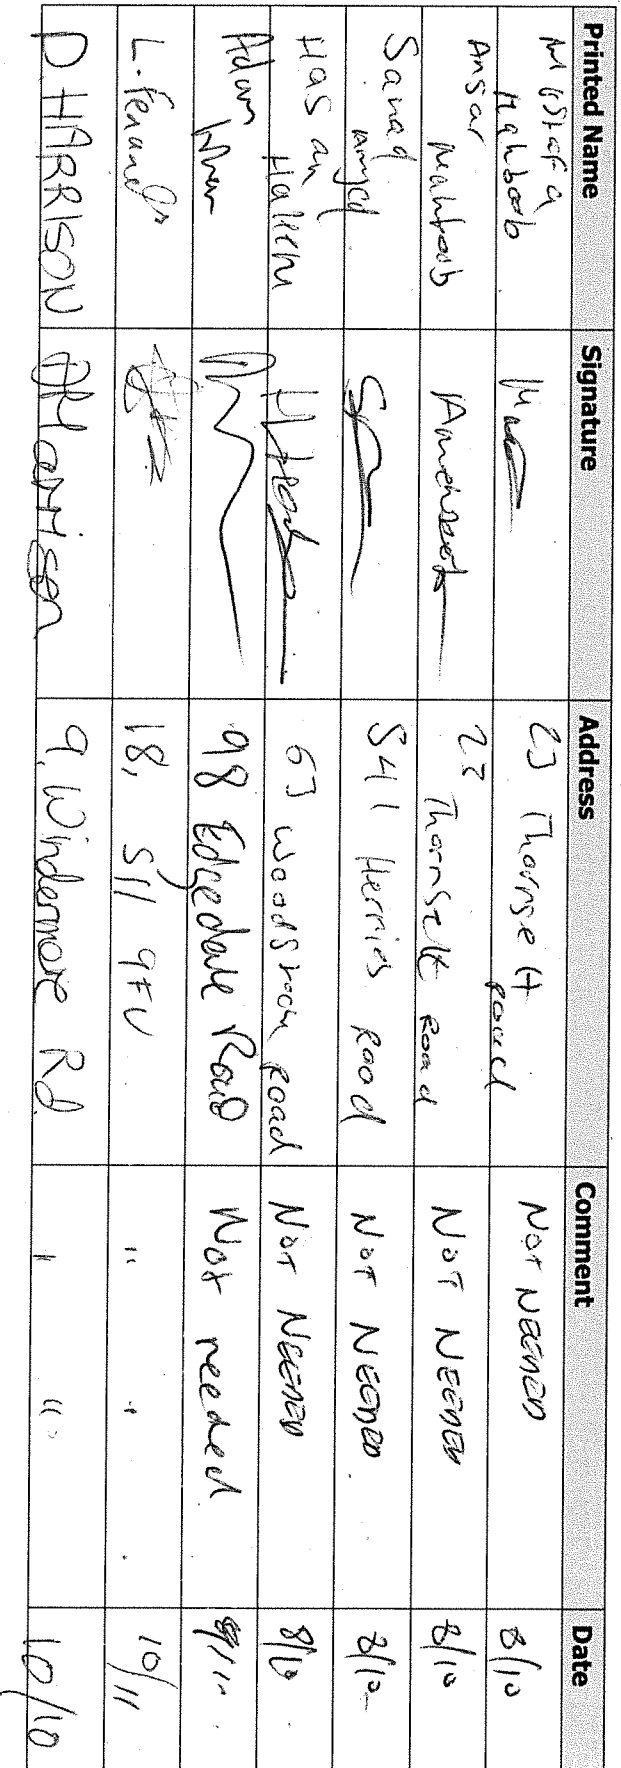 Printed Name Signature Address Comment Date
Mustafa Mahboob 23 Thornsett Road NOT NEEDED 8/10
Ansar Mahboob 23 Thornsett Road NOT NEEDED 8/10
Sanaa Amjd 541 Herries Road NOT NEEDED 8/10
Hasan Haleem 63 Woodstock Road NOT NEEDED 8/10
Adam 98 Edgedale Road Not needed
L. Fernands 18, S11 9FU " " 10/11
D. HARRISON DHarrison 9, Windermere Rd. " " 10/10